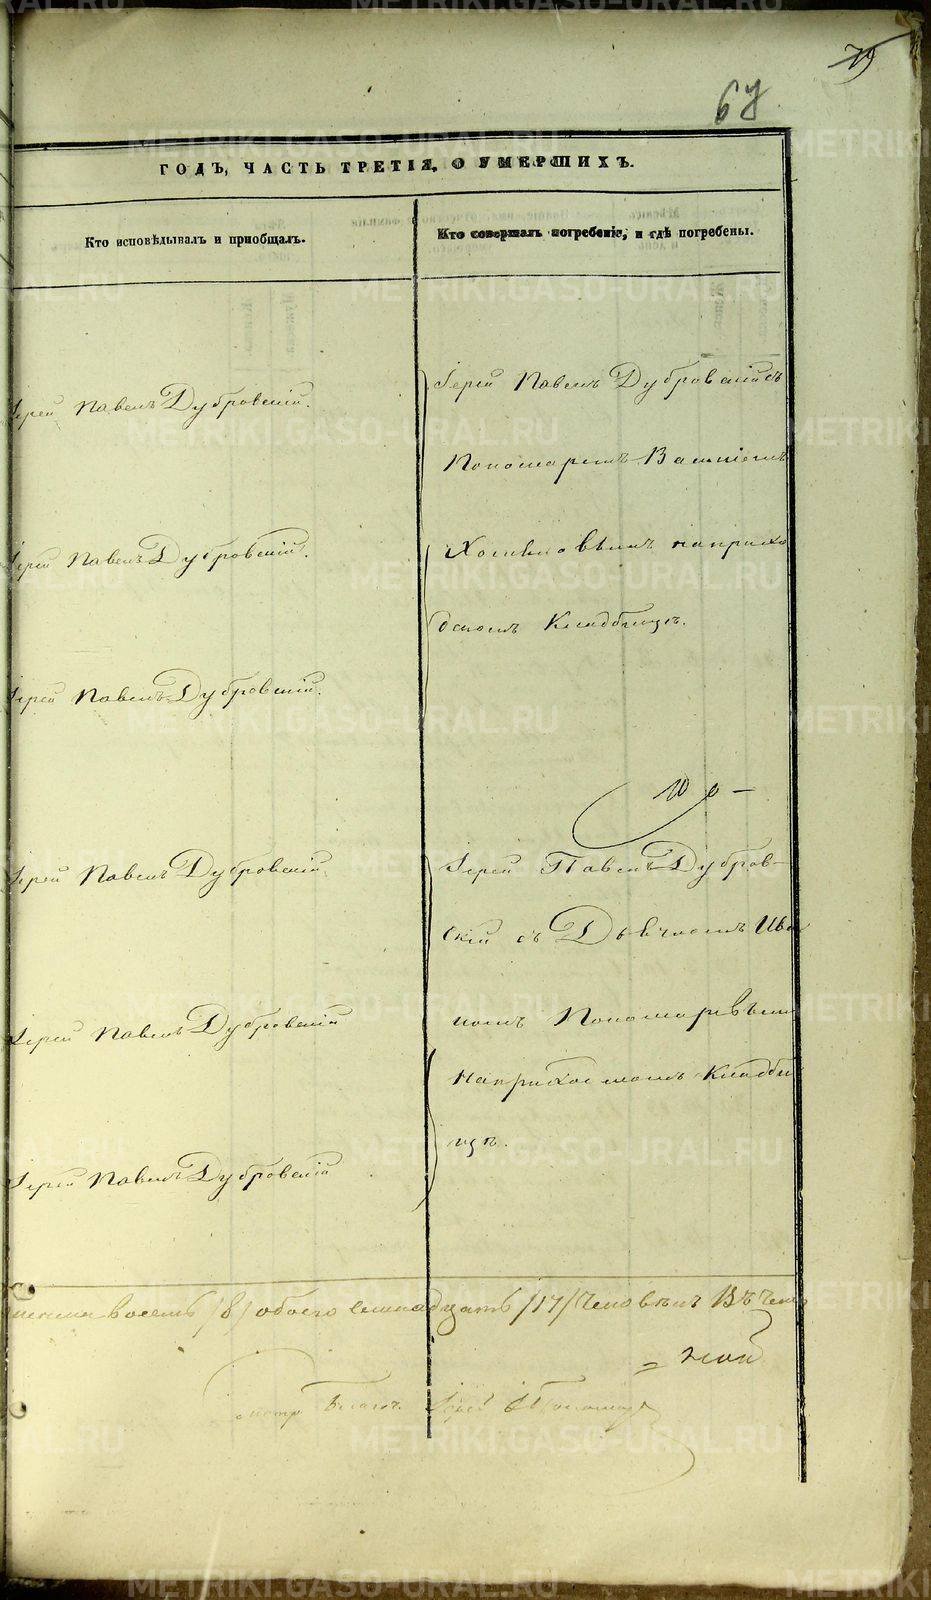 79
67
ГОДЪ, ЧАСТЬ ТРЕТІЯ, О УМЕРШИХЪ.
Кто исповѣдывалъ и пріобщалъ.
Кто совершалъ погребеніе, и гдѣ погребены.
Іерей Павелъ Дубровскій.
Іерей Павелъ Дубровскій.
Іерей Павелъ Дубровскій.
Іерей Павелъ Дубровскій.
Іерей Павелъ Дубровскій
Іерей Павелъ Дубровскій
Іерей Павелъ Дубровскій съ
Пономаремъ
на прихо
дскомъ Кладбищѣ.
Іерей Павелъ Дубров-
скій съ Дьячкомъ Ива
номъ Пономаревымъ
на приходскомъ Кладби
щѣ.
восемь /8/ обоего семнадцать /17/ Человѣкъ
Іерей
METRIKI.GASO-URAL.RU